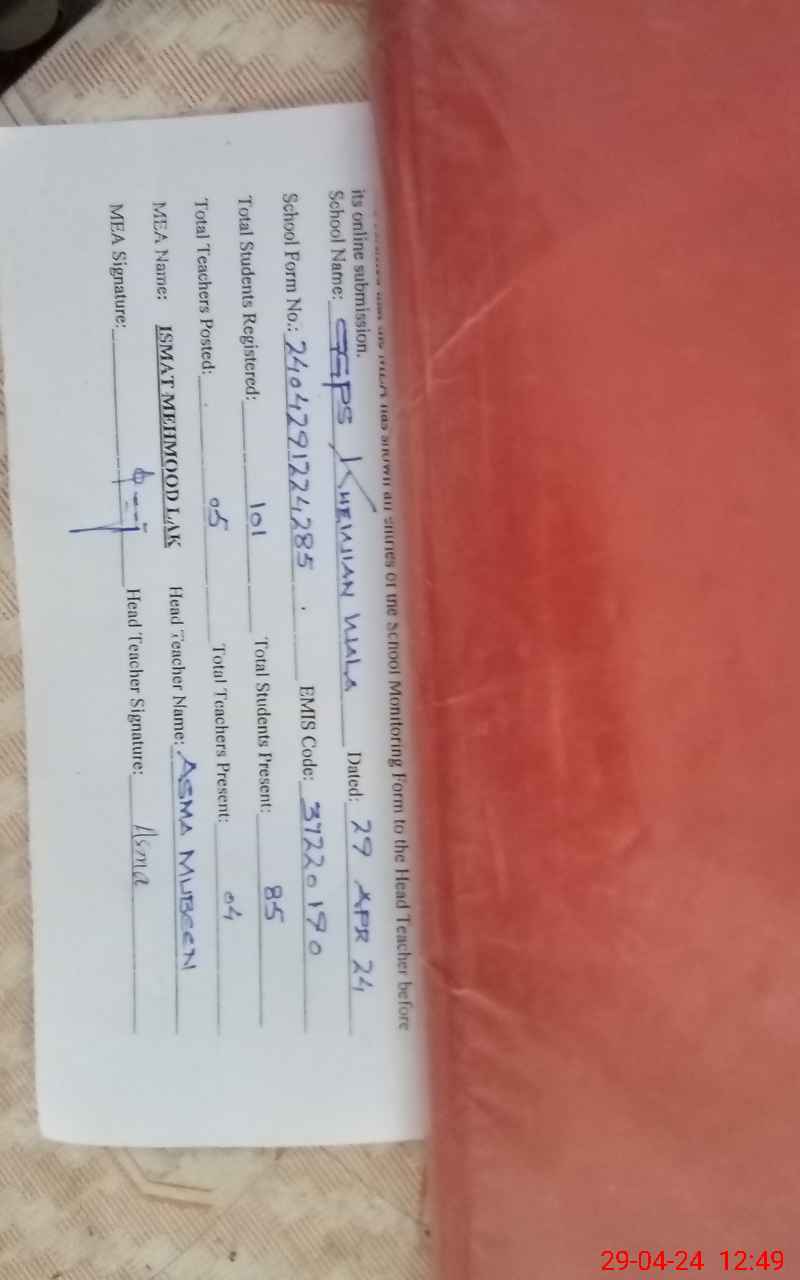 has shown all entries of the School Monitoring Form to the Head Teacher before
its online submission.
School Name: GGPS KHEWIAN WALA Dated: 29 APR 24
School Form No.: 2404291224285 . EMIS Code: 37220190
Total Students Registered: 101 Total Students Present: 85
Total Teachers Posted: 05 Total Teachers Present: 04
MEA Name: ISMAT MEHMOOD LAK Head Teacher Name: ASMA MUBEEN
MEA Signature: Head Teacher Signature: Asma
29-04-24 12:49